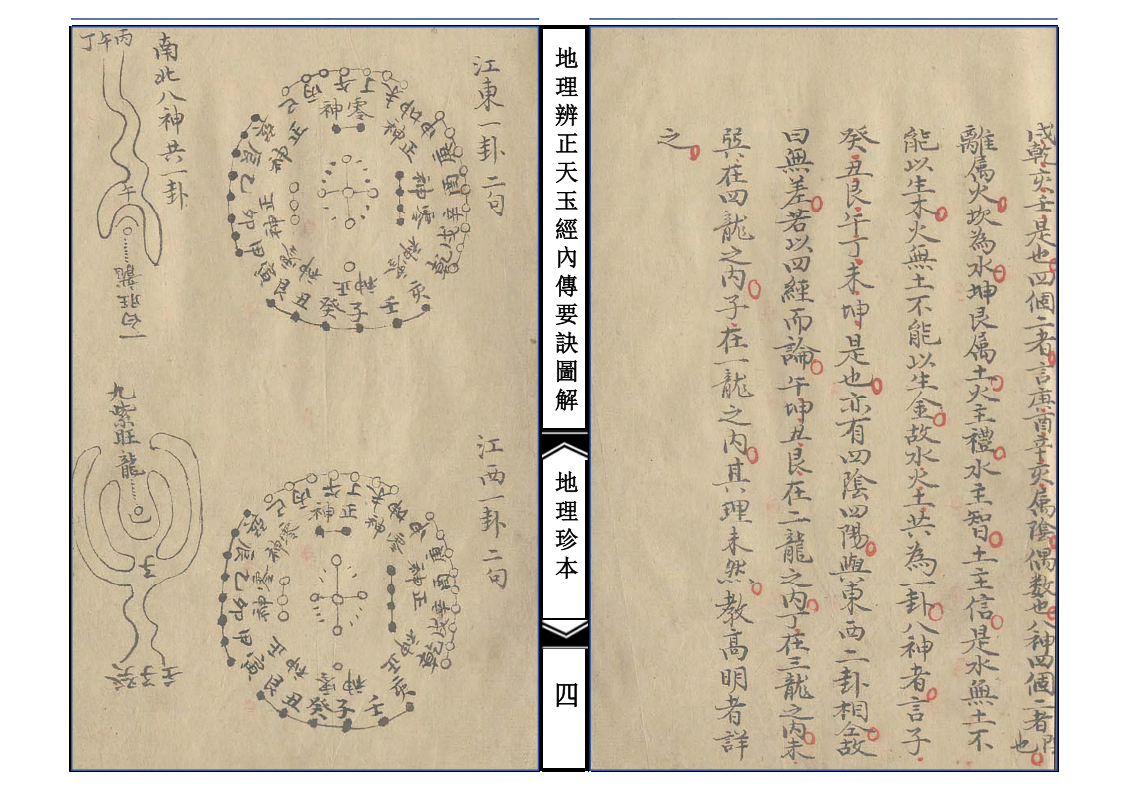 戌乾亥壬是也四個二者言庚酉辛亥属陰偶数也八神四個二者
也
離属火坎為水坤艮属土火主禮水主智土主信是水無土不
能以生木火無土不能以生金故水火土共為一卦八神者言子
癸丑艮午丁未坤是也亦有四陰四陽與東西二卦相仝故
曰無差若以四經而論午坤丑艮在二龍之内丁在三龍之内未
癸在四龍之内子在一龍之内其理未然教髙明者詳
之
地理辨正天玉經內傳要訣圖解
地理珍本
四
江東一卦二句
神零
丙午丁未
庚酉辛戌乾亥壬子癸丑艮寅甲卯乙辰巽巳
神正
江西一卦二句
神正
丙午丁未坤
庚酉辛戌乾亥壬子癸丑艮寅甲卯乙辰巽巳
神零
南北八神共一卦
丙午丁
午
一白旺龍
九紫旺龍
子
壬子癸